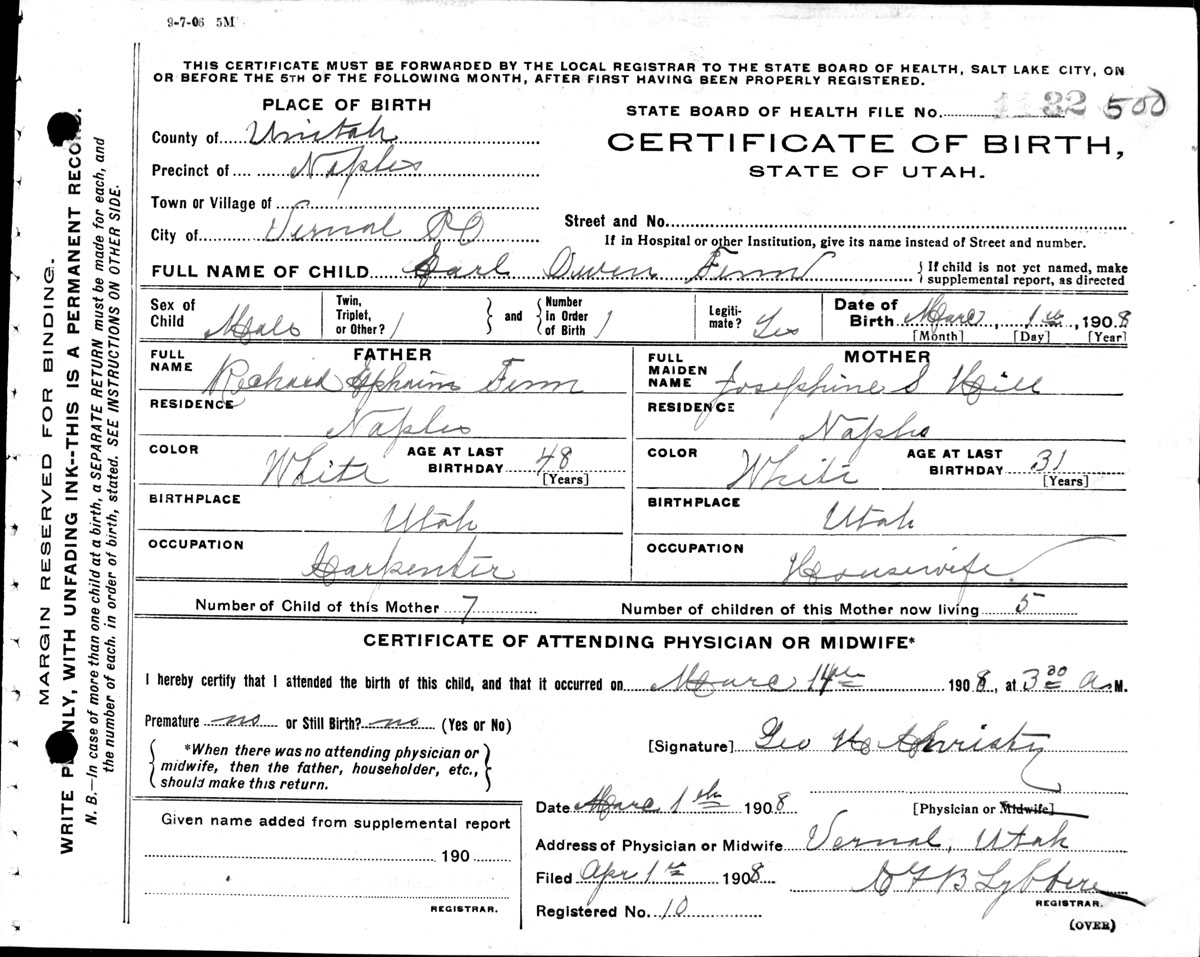 9-7-06 5M
THIS CERTIFICATE MUST BE FORWARDED BY THE LOCAL REGISTRAR TO THE STATE BOARD OF HEALTH, SALT LAKE CITY, ON
OR BEFORE THE 5TH OF THE FOLLOWING MONTH, AFTER FIRST HAVING BEEN PROPERLY REGISTERED.
PLACE OF BIRTH
STATE BOARD OF HEALTH FILE No. 32 500
County of Unitah
CERTIFICATE OF BIRTH,
Precinct of Naples
STATE OF UTAH.
Town or Village of
Street and No.
City of Vernal PO
If in Hospital or other Institution, give its name instead of Street and number.
FULL NAME OF CHILD Earl Owen Finn
If child is not yet named, make
supplemental report, as directed
Sex of Child Male
Twin, Triplet, or Other? 1
and
Number in Order of Birth 1
Legiti-mate? Yes
Date of Birth Marc 1 , 1908
[Month] [Day] [Year]
FATHER
FULL NAME Richard Ephraim Finn
MOTHER
FULL MAIDEN NAME Josephine S Hill
RESIDENCE Naples
RESIDENCE Naples
COLOR White AGE AT LAST BIRTHDAY 48 [Years]
COLOR White AGE AT LAST BIRTHDAY 31 [Years]
BIRTHPLACE Utah
BIRTHPLACE Utah
OCCUPATION Carpenter
OCCUPATION Housewife
Number of Child of this Mother 7
Number of children of this Mother now living 5
CERTIFICATE OF ATTENDING PHYSICIAN OR MIDWIFE*
I hereby certify that I attended the birth of this child, and that it occurred on Marc 1908, at 3 30 A.M.
Premature no or Still Birth? no (Yes or No)
*When there was no attending physician or
midwife, then the father, householder, etc.,
should make this return.
[Signature] Geo H Christy
[Physician or Midwife]
Date Marc 1908
Given name added from supplemental report
190
REGISTRAR.
Address of Physician or Midwife Vernal, Utah
Filed Apr 1 1908
REGISTRAR.
Registered No. 10
(OVER)
MARGIN RESERVED FOR BINDING.
WRITE P NLY, WITH UNFADING INK--THIS IS A PERMANENT RECORD.
N. B.—In case of more than one child at a birth, a SEPARATE RETURN must be made for each, and
the number of each, in order of birth, stated. SEE INSTRUCTIONS ON OTHER SIDE.